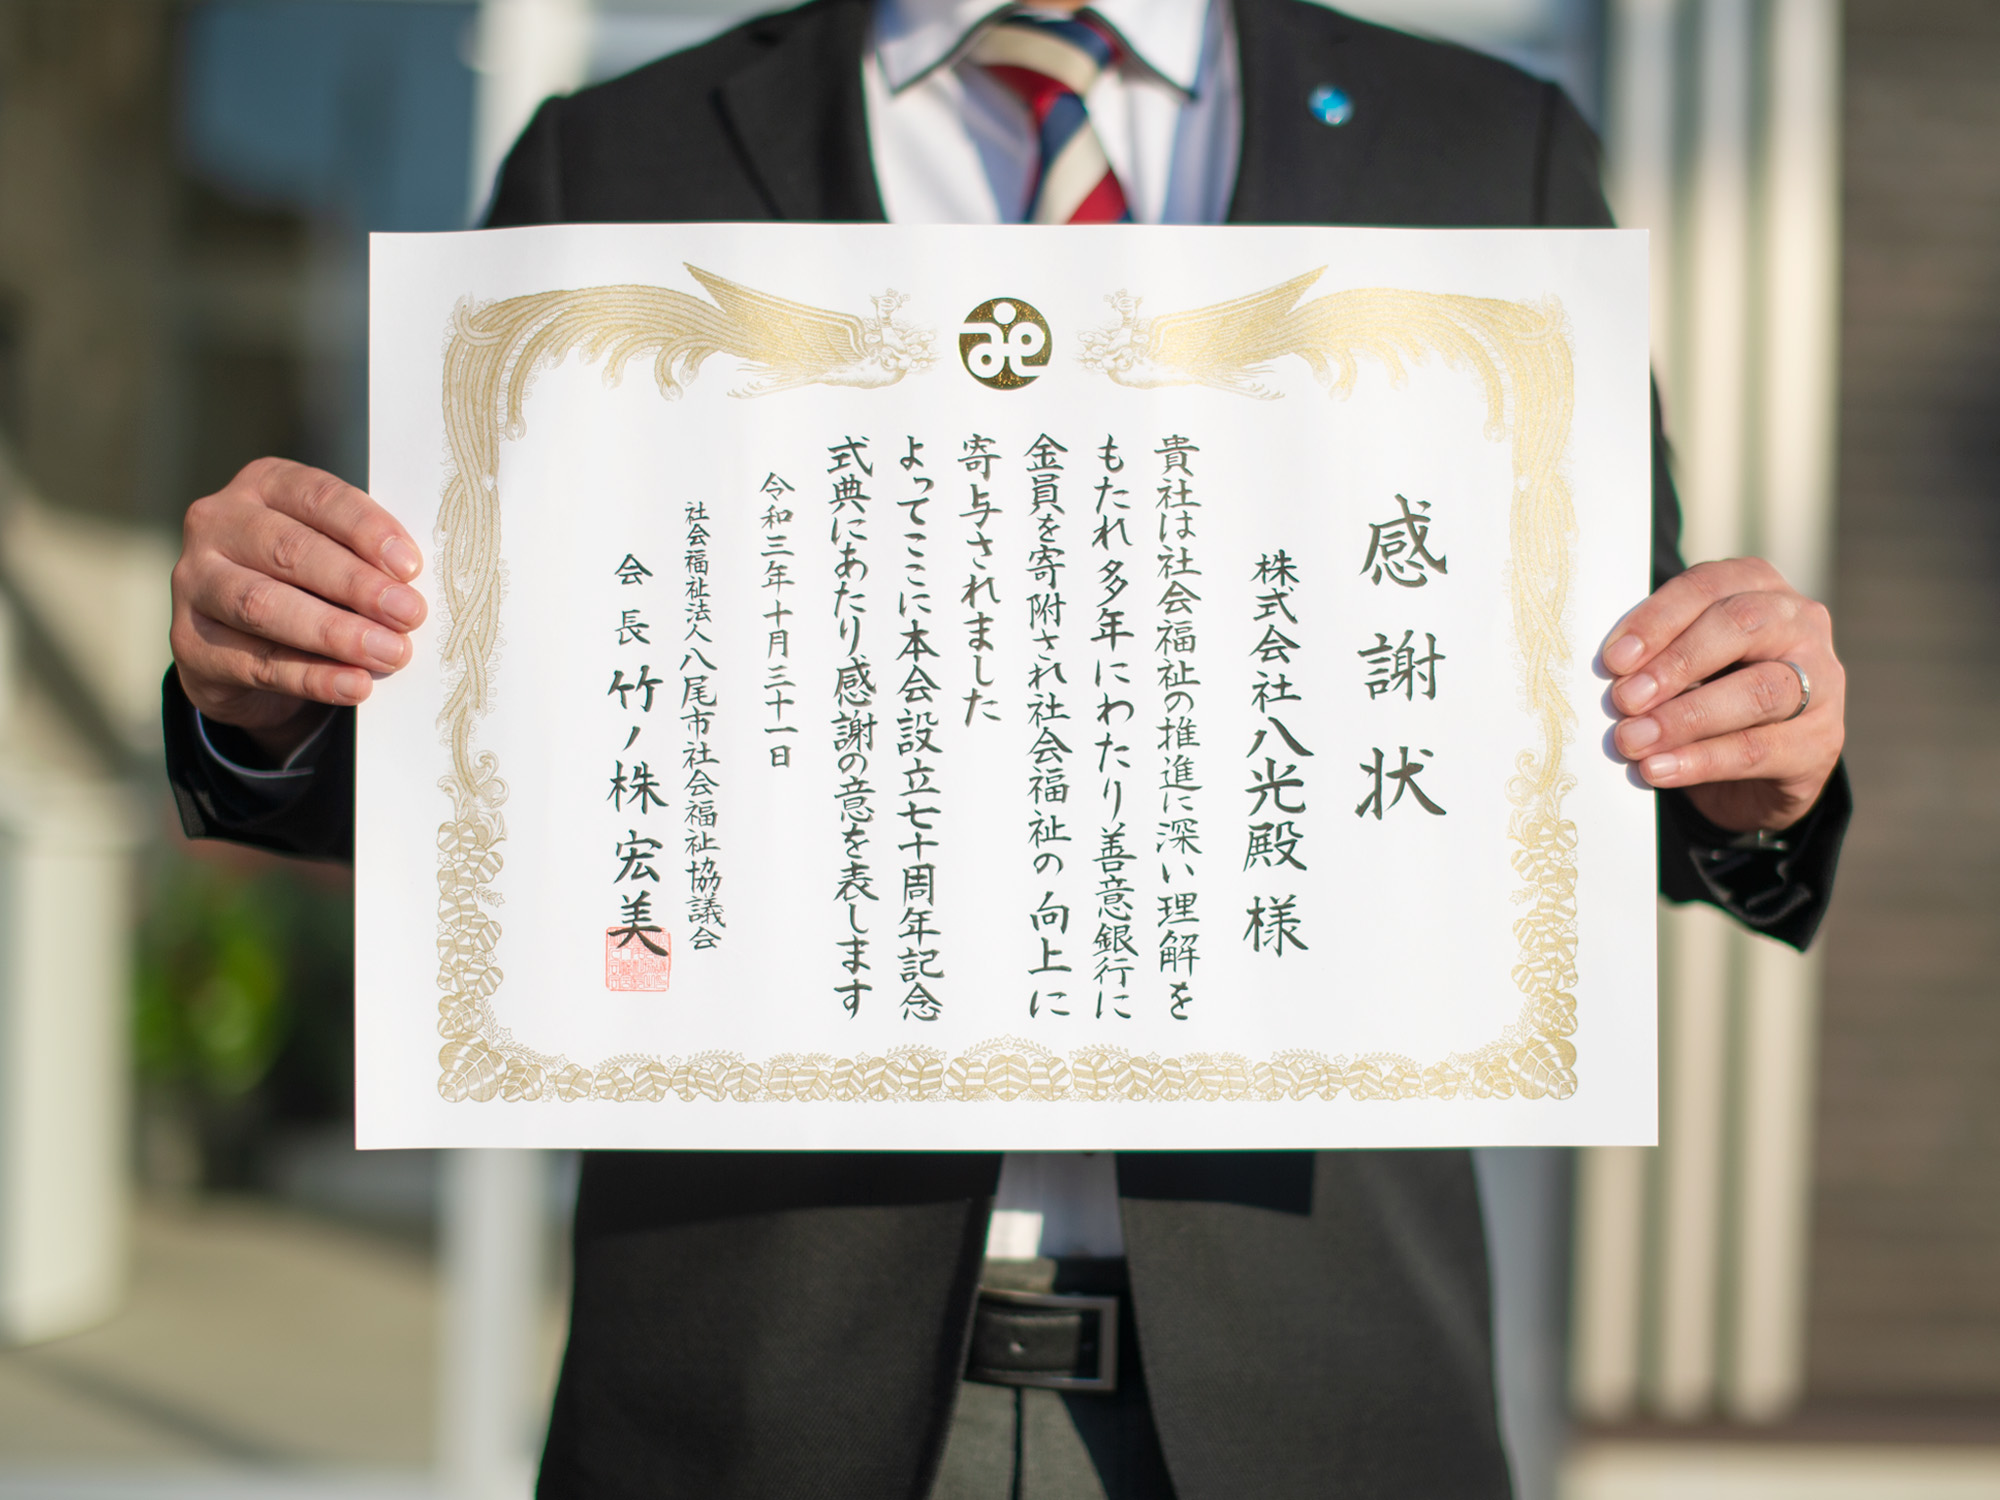 感謝状
株式会社八光殿様
貴社は社会福祉の推進に深い理解を
もたれ多年にわたり善意銀行に
金員を寄附され社会福祉の向上に
寄与されました
よってここに本会設立七十周年記念
式典にあたり感謝の意を表します
令和三年十月三十一日
社会福祉法人八尾市社会福祉協議会
会長竹ノ株宏美